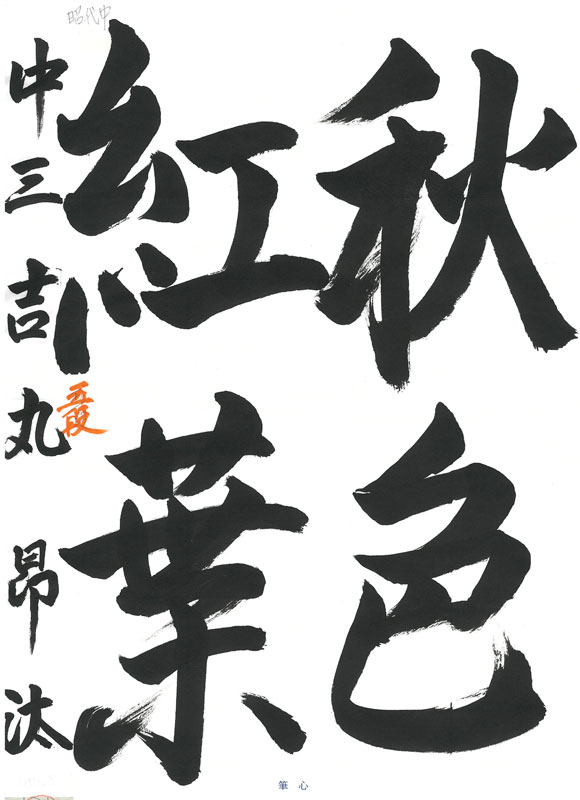 秋色
紅葉
中三 吉丸 昂汰
五段
昭代中
筆心